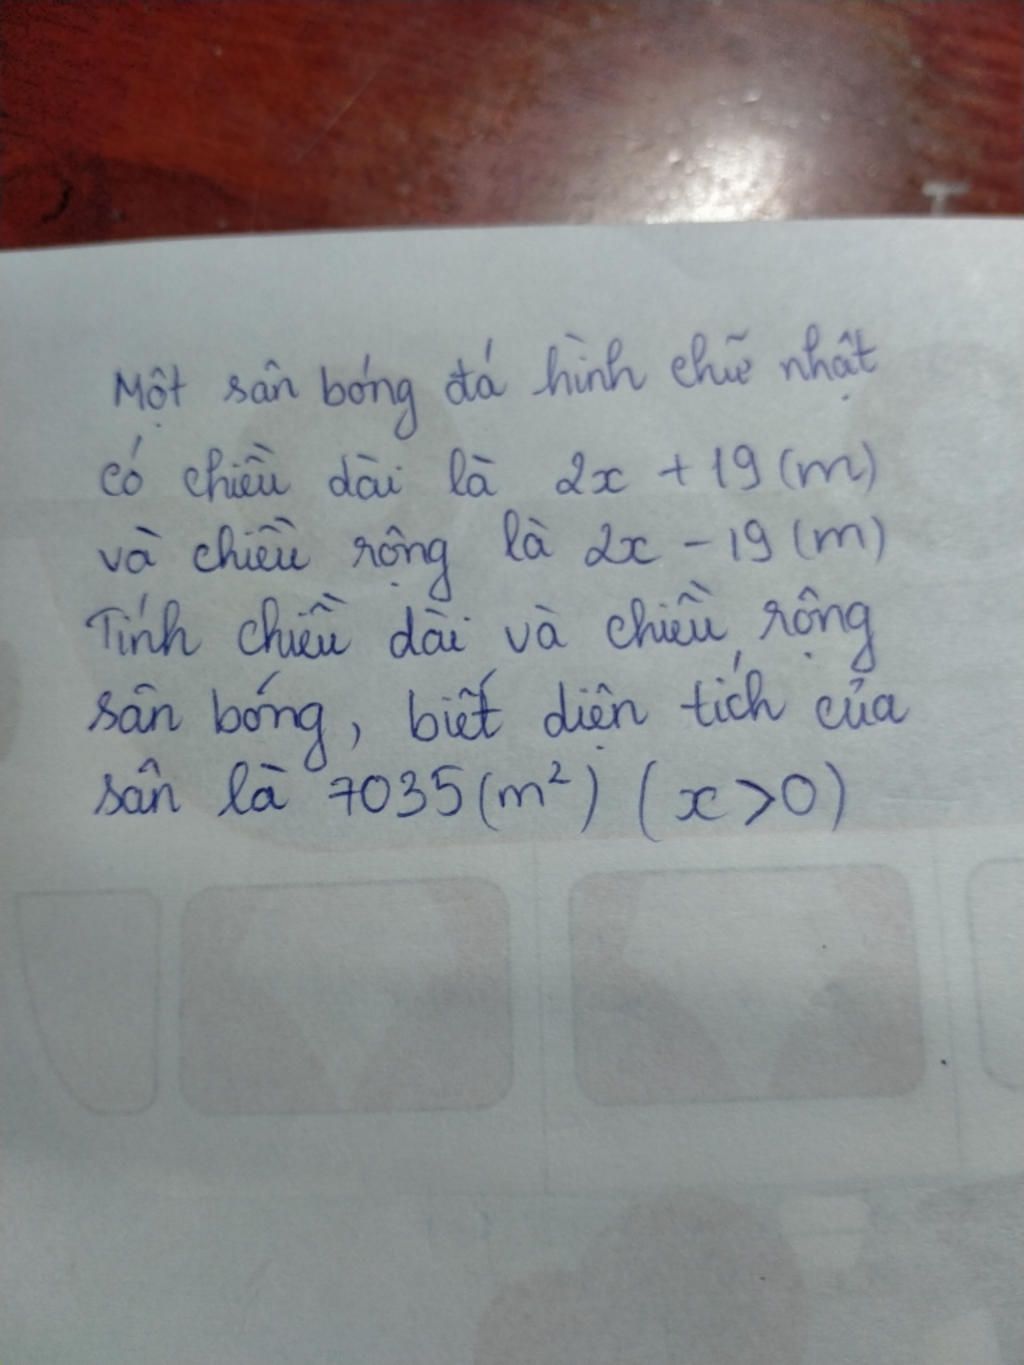 Một sân bóng đá hình chữ nhật
có chiều dài là 2x + 19 (m)
và chiều rộng là 2x - 19 (m)
Tính chiều dài và chiều rộng
sân bóng, biết diện tích của
sân là 7035 (m²) (x > 0)